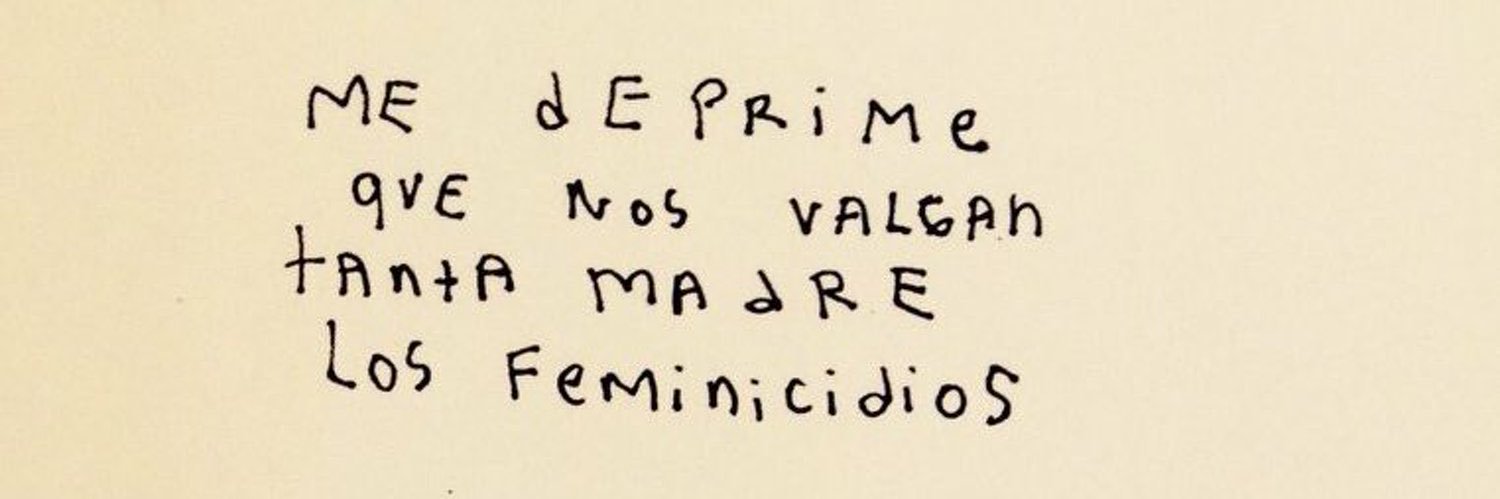 ME dEPRiMe
qVE NOS VALGAn
tAntA MAdRE
LOS FeMinicidioS